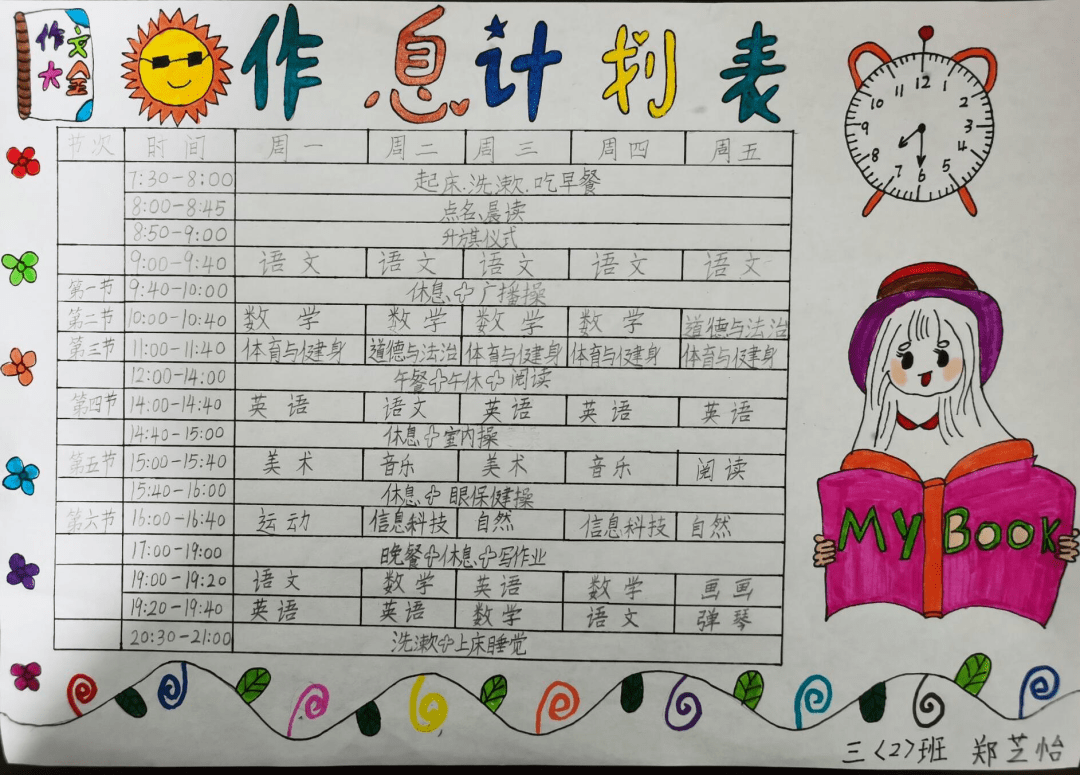 作文
大全
作息计划表
节次 时间 周一 周二 周三 周四 周五
7:30-8:00 起床.洗漱.吃早餐
8:00-8:45 点名、晨读
8:50-9:00 升旗仪式
9:00-9:40 语文 语文 语文 语文 语文
第一节 9:40-10:00 休息+广播操
第二节 10:00-10:40 数学 数学 数学 数学 道德与法治
第三节 11:00-11:40 体育与健身 道德与法治 体育与健身 体育与健身 体育与健身
12:00-14:00 午餐+午休+阅读
第四节 14:00-14:40 英语 语文 英语 英语 英语
14:40-15:00 休息+室内操
第五节 15:00-15:40 美术 音乐 美术 音乐 阅读
15:40-16:00 休息+眼保健操
第六节 16:00-16:40 运动 信息科技 自然 信息科技 自然
17:00-19:00 晚餐+休息+写作业
19:00-19:20 语文 数学 英语 数学 画画
19:20-19:40 英语 英语 数学 语文 弹琴
20:30-21:00 洗漱+上床睡觉
12 1 2 3 4 5 6 7 8 9 10 11
My Book
三〈2〉班 郑芝怡